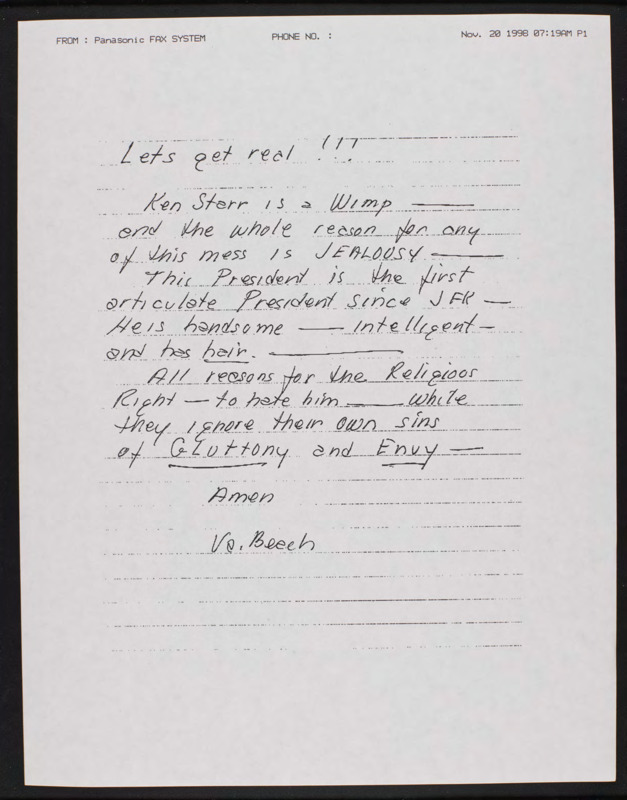 FROM : Panasonic FAX SYSTEM PHONE NO. : Nov. 20 1998 07:19AM P1
Lets get real !!!
Ken Starr is a Wimp ——
and the whole reason for any
of this mess is JEALOUSY ——
This President is the first
articulate President since JFK —
He is handsome —— intelligent —
and has hair. ————
All reasons for the Religioos
Right — to hate him —— while
they ignore their own sins
of Gluttony and Envy —
Amen
Va. Beach